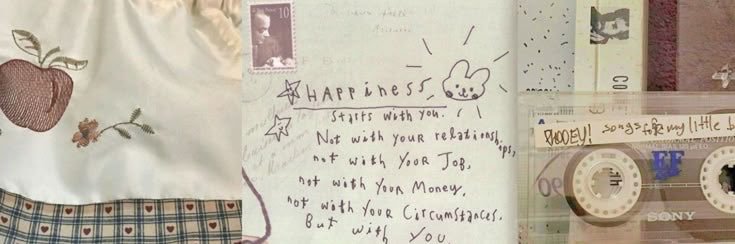 10
HAPPiNESS
Starts with you.
Not with your relationships,
not with Your Job,
not with Your Money,
not with Your Circumstances.
But with YOU.
CO
A
RHOOEY! songs for my little b
NORMAL BIAS
EF
90
SONY